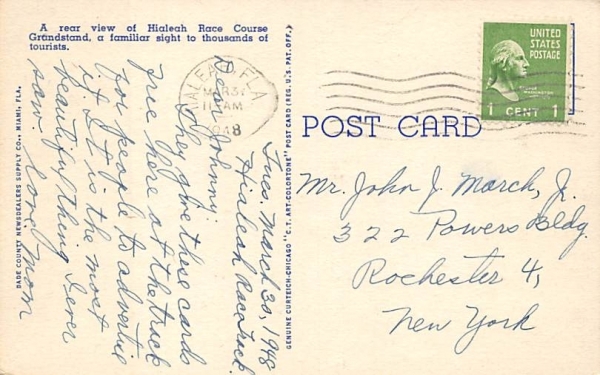 A rear view of Hialeah Race Course
Grandstand, a familiar sight to thousands of
tourists.
Tues. March 30, 1948
Hialeah RaceTrack.
Dear Johnny:
They give these cards
free here at the track
for people to advertise
it. It is the most
beautiful thing I ever
saw. Love, Mom
DADE COUNTY NEWSDEALERS SUPPLY CO., MIAMI, FLA.
GENUINE CURTEICH-CHICAGO "C. T. ART-COLORTONE" POST CARD (REG. U. S. PAT. OFF.)
HIALEAH, FLA.
MAR 31
11 AM
1948
UNITED
STATES
POSTAGE
1 CENT 1
POST CARD
Mr. John J. March, Jr.
322 Powers Bldg.
Rochester 4,
New York